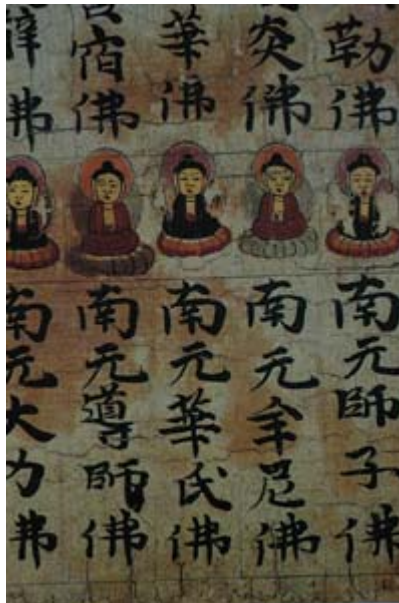 勒佛
炎佛
華佛
宿佛
佛
南无師子佛
南无牟尼佛
南无華氏佛
南无導師佛
南无大力佛